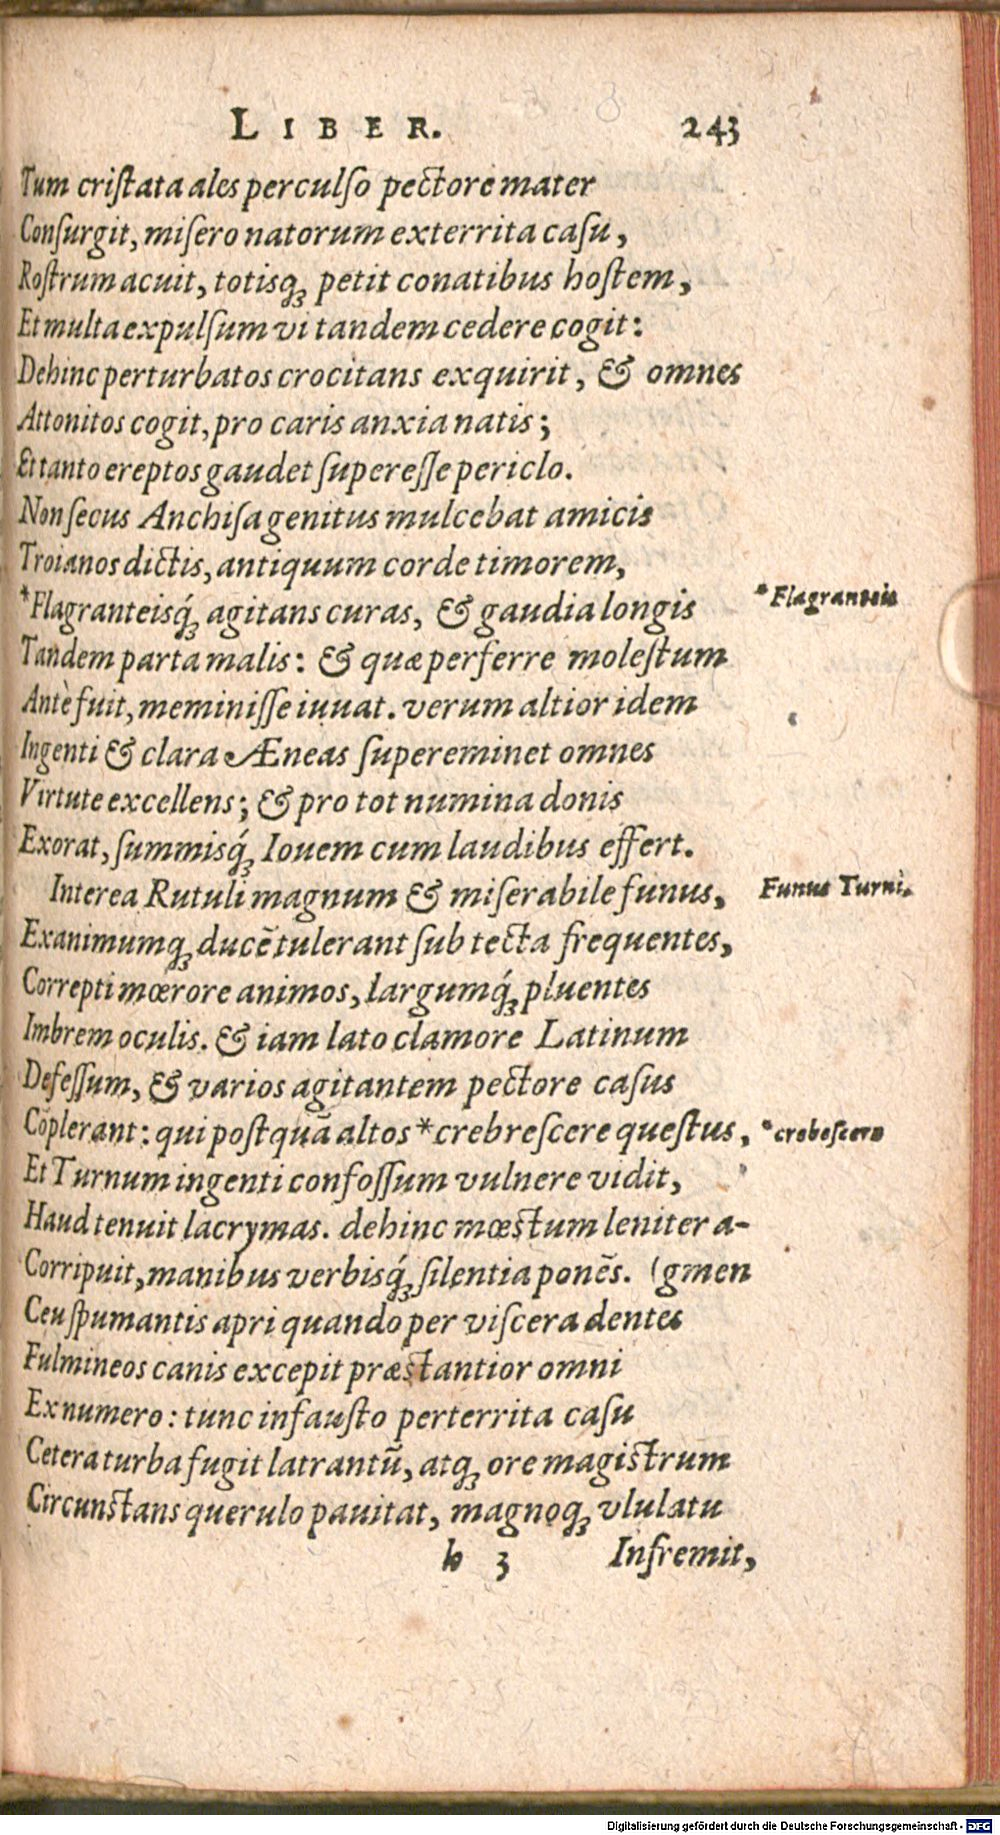 LIBER. 243
Tum criſtata ales perculſo pectore mater
Conſurgit, miſero natorum exterrita caſu,
Roſtrum acuit, totisq; petit conatibus hoſtem,
Et multa expulſum vi tandem cedere cogit:
Dehinc perturbatos crocitans exquirit, & omnes
Attonitos cogit, pro caris anxia natis;
Et tanto ereptos gaudet ſupereſſe periclo.
Non ſecus Anchiſa genitus mulcebat amicis
Troianos dictis, antiquum corde timorem,
*Flagranteisq́; agitans curas, & gaudia longis *Flagranteis
Tandem parta malis: & quæ perferre moleſtum
Antè fuit, meminiſſe iuuat. verum altior idem
Ingenti & clara Æneas ſupereminet omnes
Virtute excellens; & pro tot numina donis
Exorat, ſummisq́; Iouem cum laudibus effert.
Interea Rutuli magnum & miſerabile funus, Funus Turni.
Exanimumq; ducē tulerant ſub tecta frequentes,
Correpti mœrore animos, largumq́; pluentes
Imbrem oculis. & iam lato clamore Latinum
Defeſſum, & varios agitantem pectore caſus
Cōplerant: qui poſtquā altos *crebreſcere queſtus, *crebeſcere
Et Turnum ingenti confoſſum vulnere vidit,
Haud tenuit lacrymas. dehinc mœſtum leniter a-
Corripuit, manibus verbisq́; ſilentia ponēs. (gmen
Ceu ſpumantis apri quando per viſcera dentes
Fulmineos canis excepit præſtantior omni
Ex numero: tunc infauſto perterrita caſu
Cetera turba fugit latrantū, atq; ore magiſtrum
Circunſtans querulo pauitat, magnoq; vlulatu
h 3 Infremit,
Digitalisierung gefördert durch die Deutsche Forschungsgemeinschaft - DFG